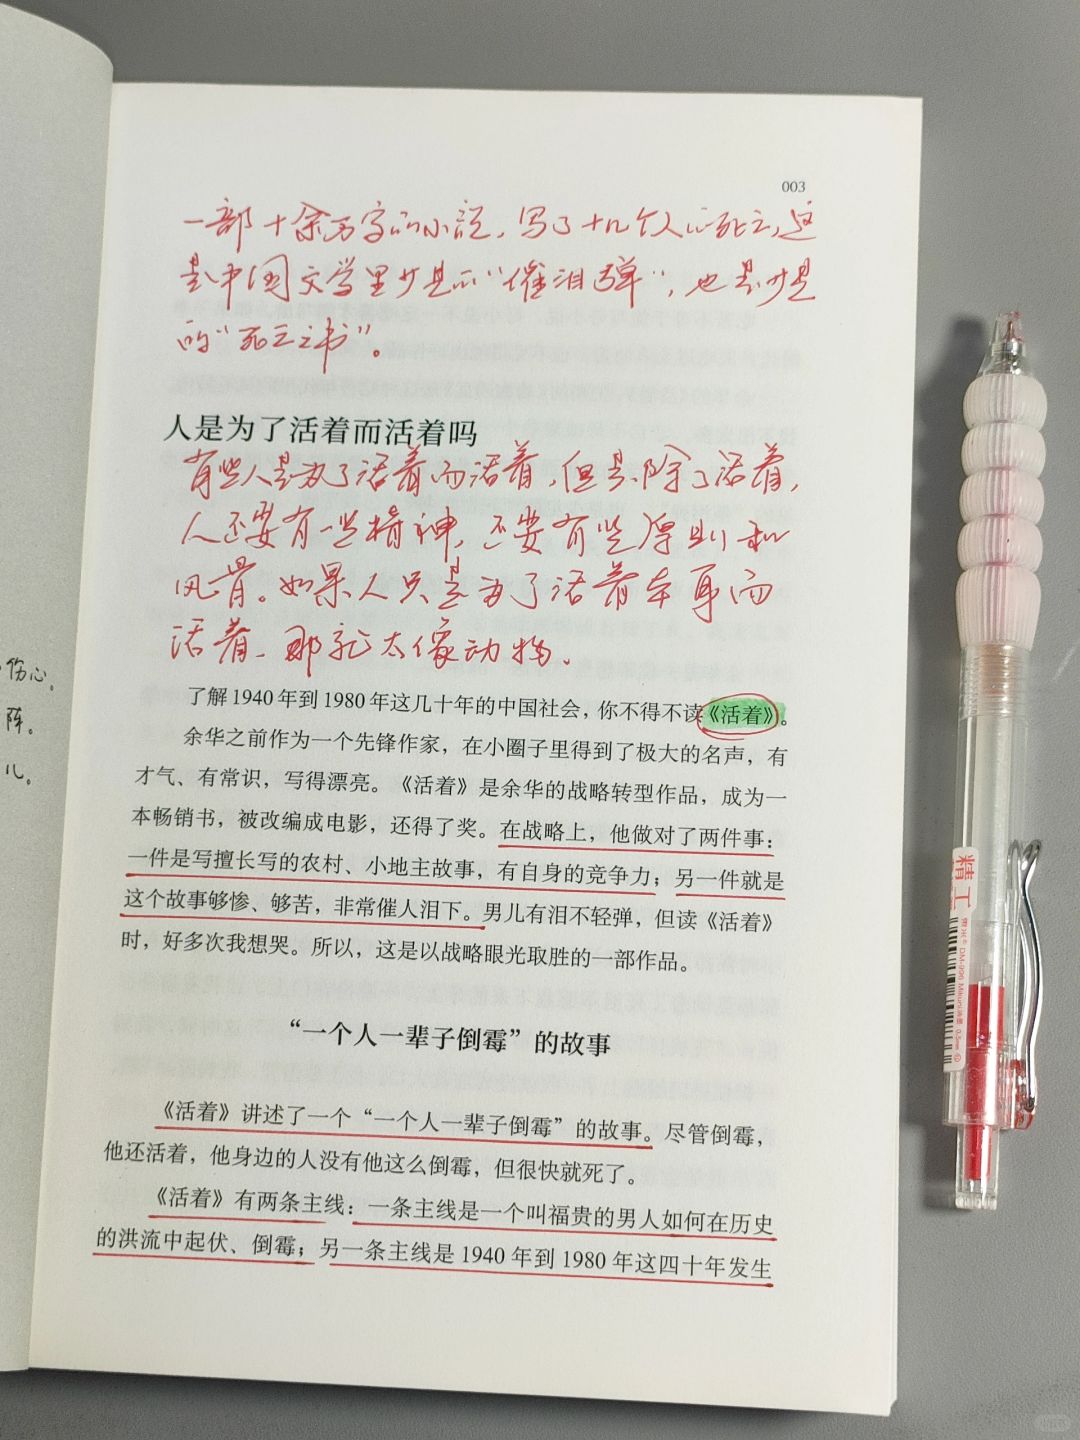 003
一部十余万字的小说，写了十几个人的死亡，这
是中国文学里少见的“催泪弹”，也是少见
的“死亡之书”。
人是为了活着而活着吗
有些人是为了活着而活着，但是，除了活着，
人还要有一些精神，还要有些原则和
风骨。如果人只是为了活着本身而
活着，那就太像动物。
伤心。
阵。
儿。
了解1940年到1980年这几十年的中国社会，你不得不读《活着》。
余华之前作为一个先锋作家，在小圈子里得到了极大的名声，有
才气、有常识，写得漂亮。《活着》是余华的战略转型作品，成为一
本畅销书，被改编成电影，还得了奖。在战略上，他做对了两件事：
一件是写擅长写的农村、小地主故事，有自身的竞争力；另一件就是
这个故事够惨、够苦，非常催人泪下。男儿有泪不轻弹，但读《活着》
时，好多次我想哭。所以，这是以战略眼光取胜的一部作品。
“一个人一辈子倒霉”的故事
《活着》讲述了一个“一个人一辈子倒霉”的故事。尽管倒霉，
他还活着，他身边的人没有他这么倒霉，但很快就死了。
《活着》有两条主线：一条主线是一个叫福贵的男人如何在历史
的洪流中起伏、倒霉；另一条主线是1940年到1980年这四十年发生
精工